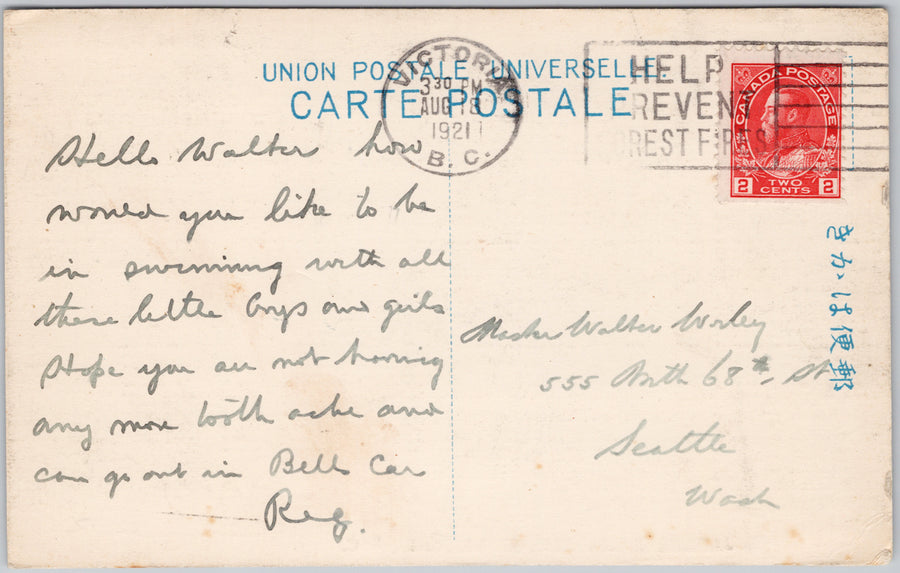 UNION POSTALE UNIVERSELLE.
CARTE POSTALE
VICTORIA
3 30 PM
AUG 18
1921
B.C.
HELP
PREVENT
FOREST FIRES
CANADA POSTAGE
2 TWO CENTS 2
きかは便郵
Hello Walter how
would you like to be
in swimming with all
these little boys and girls
Hope you are not having
any more tooth ache and
can go out in Bells Car
Reg.
Master Walter Worley
555 68th St
Seattle
Wash